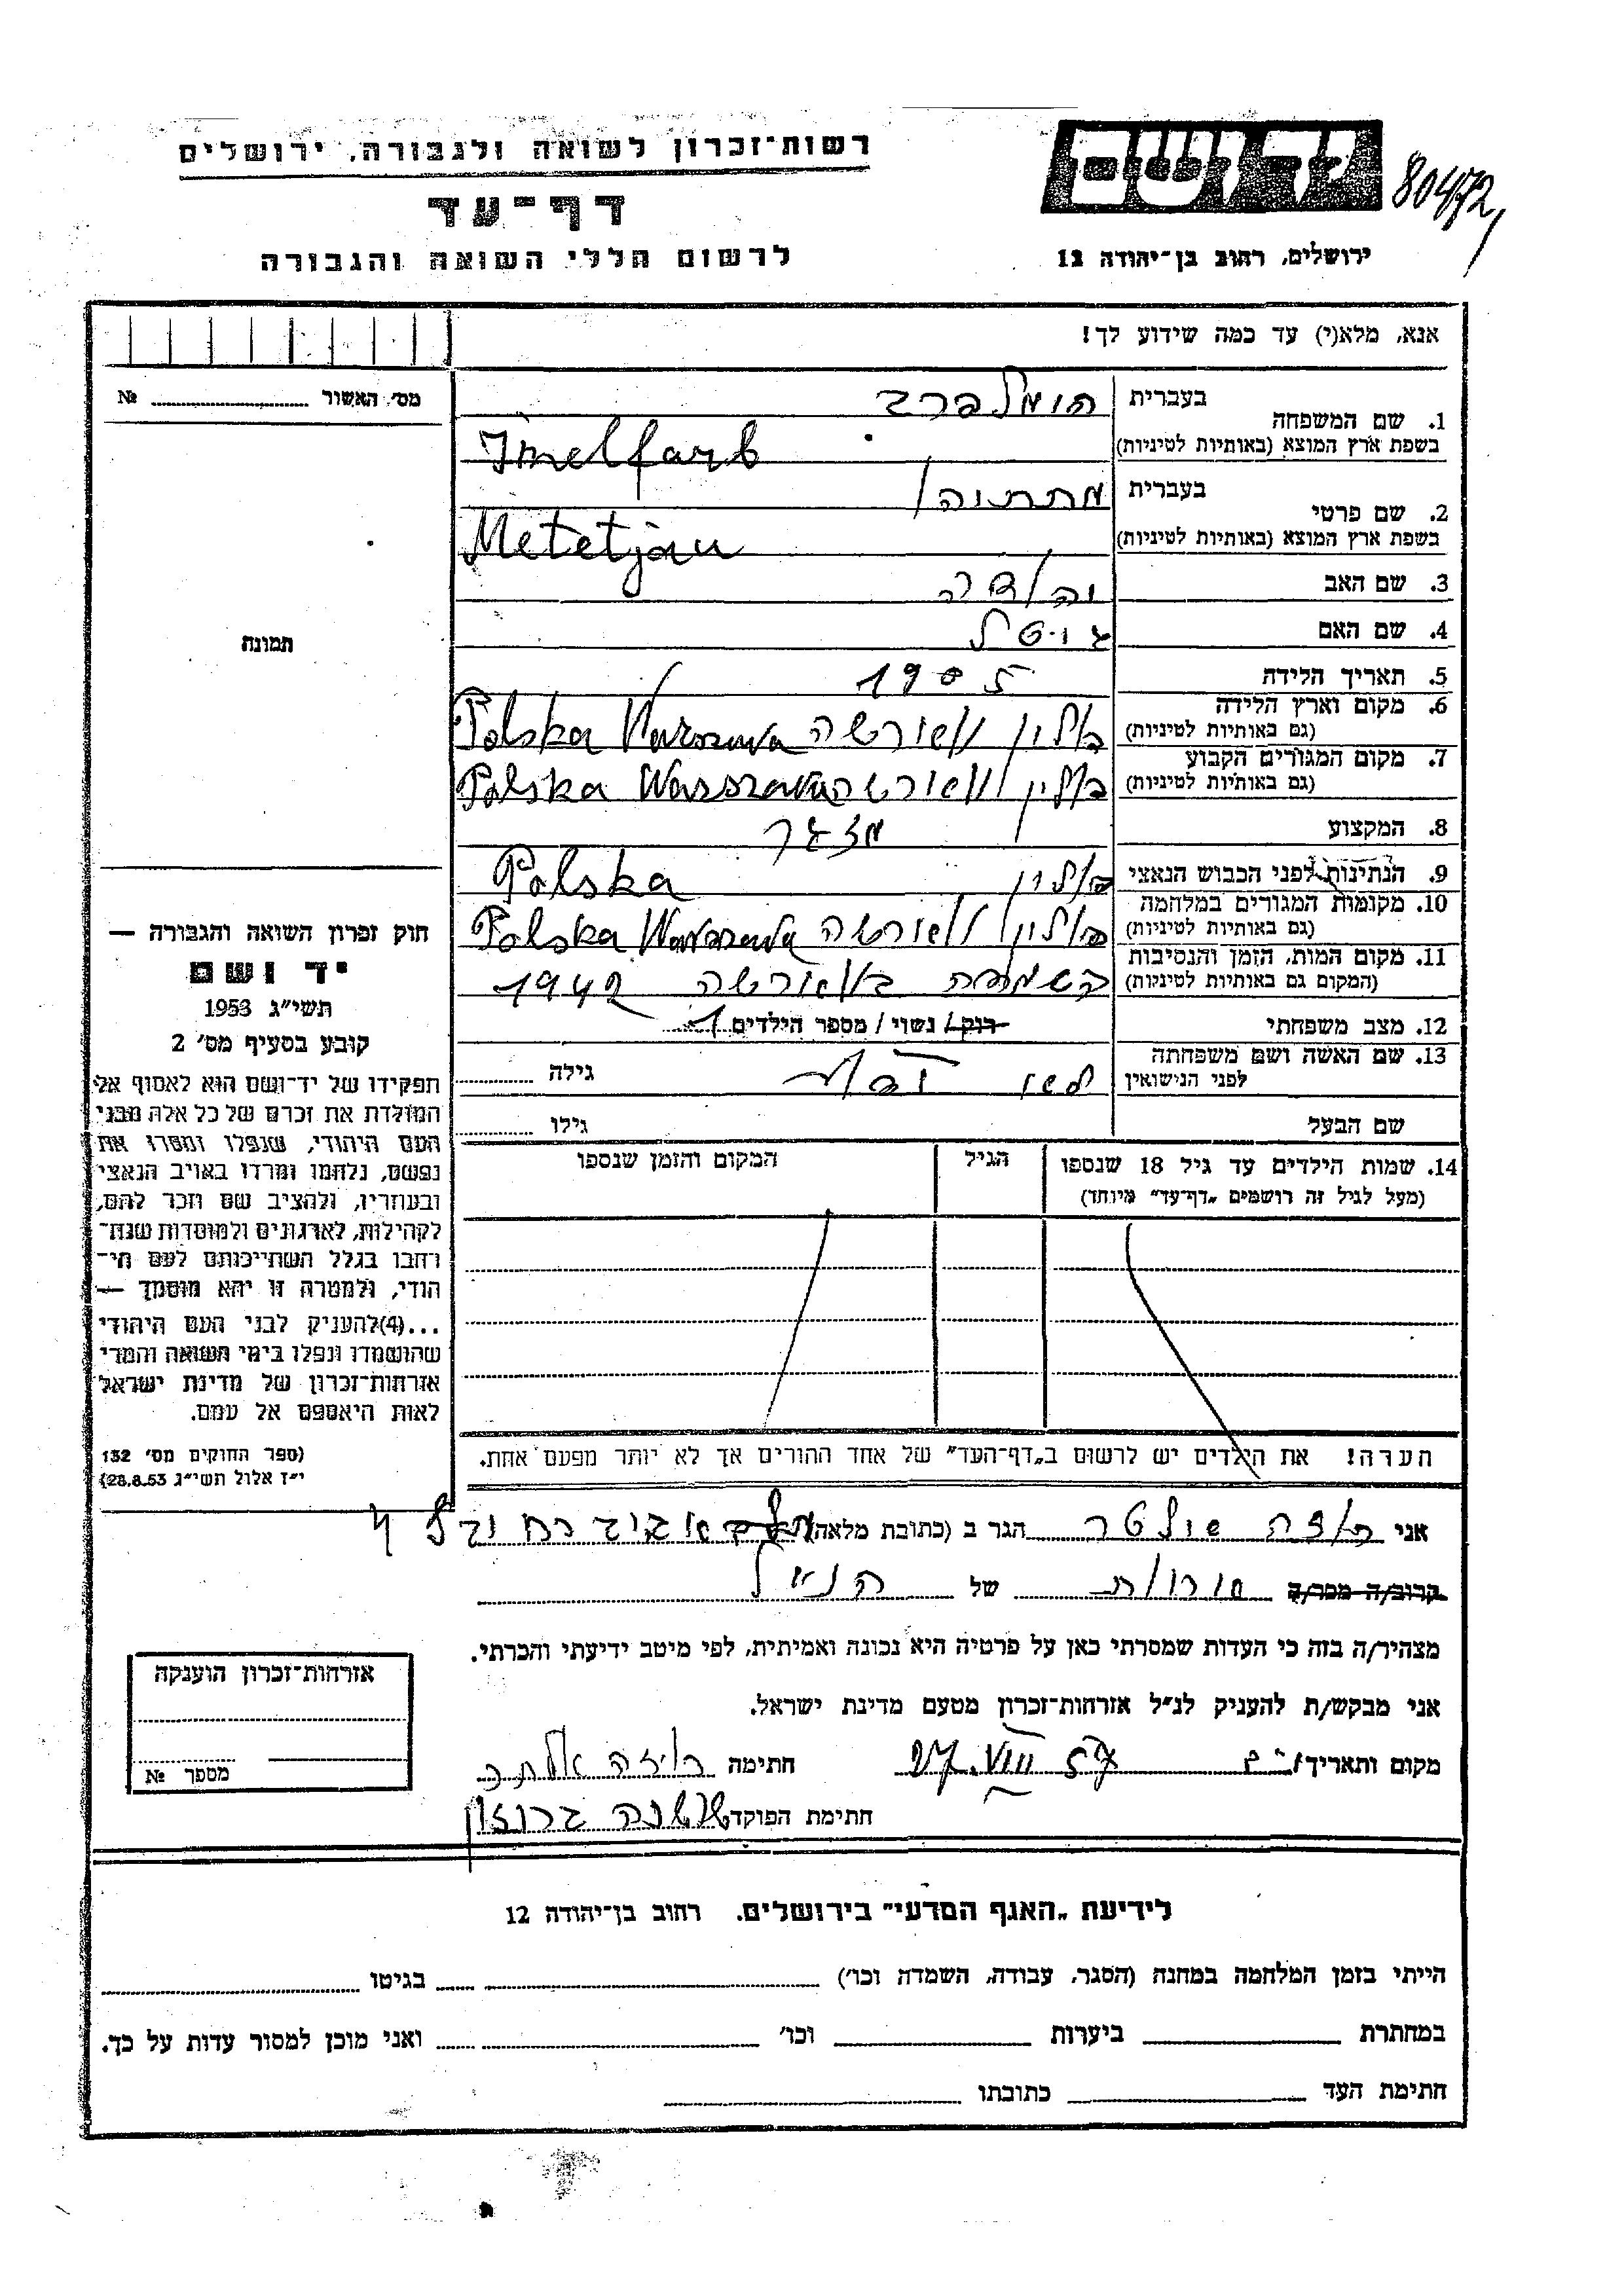 רשות־זכרון לשואה ולגבורה, ירושלים
יד ושם
80472
דף־עד
לרשום חללי השואה והגבורה
ירושלים, רחוב בן־יהודה 12
אנא, מלא(י) עד כמה שידוע לך!
מס׳ האשור № 
1. שם המשפחה
בעברית
הימלפרב
בשפת ארץ המוצא (באותיות לטיניות)
Imelfarb
2. שם פרטי
בעברית
מתתיהו
בשפת ארץ המוצא (באותיות לטיניות)
Metetjau
3. שם האב יהודה
4. שם האם גיטל
תמונה
5. תאריך הלידה 1905
6. מקום וארץ הלידה
(גם באותיות לטיניות)
פולין וורשה Polska Warszawa
7. מקום המגורים הקבוע
(גם באותיות לטיניות)
פולין וורשה Polska Warszawa
8. המקצוע
9. הנתינות לפני הכבוש הנאצי פולין Polska
10. מקומות המגורים במלחמה
(גם באותיות לטיניות)
פולין וורשה Polska Warszawa
11. מקום המות, הזמן והנסיבות
(המקום גם באותיות לטיניות)
בוורשה 1942
12. מצב משפחתי רוק / נשוי / מספר הילדים 1
13. שם האשה ושם משפחתה
לפני הנישואין
גילה
שם הבעל גילו
14. שמות הילדים עד גיל 18 שנספו
(מעל לגיל זה רושמים „דף־עד” מיוחד)
הגיל
המקום והזמן שנספו
הערה! את הילדים יש לרשום ב„דף־העד” של אחד ההורים אך לא יותר מפעם אחת.
חוק זכרון השואה והגבורה —
יד ושם
תשי״ג 1953
קובע בסעיף מס׳ 2
תפקידו של יד־ושם הוא לאסוף אל
המולדת את זכרם של כל אלה מבני
העם היהודי, שנפלו ומסרו את
נפשם, נלחמו ומרדו באויב הנאצי
ובעוזריו, ולהציב שם וזכר להם,
לקהילות, לארגונים ולמוסדות שנח־
רבו בגלל השתייכותם לעם הי־
הודי, ולמטרה זו יהא מוסמך —
...(4)להעניק לבני העם היהודי
שהושמדו ונפלו בימי השואה והמרי
אזרחות־זכרון של מדינת ישראל
לאות היאספם אל עמם.
(ספר החוקים מס׳ 132
י״ז אלול תשי״ג 28.8.53)
אני הגר ב (כתובת מלאה) תל אביב רח
קרוב/ה מכר/ה של הנ״ל
מצהיר/ה בזה כי העדות שמסרתי כאן על פרטיה היא נכונה ואמיתית, לפי מיטב ידיעתי והכרתי.
אני מבקש/ת להעניק לנ״ל אזרחות־זכרון מטעם מדינת ישראל.
מקום ותאריך 27.VIII 57 חתימה
חתימת הפוקד שושנה
אזרחות־זכרון הוענקה
מספר №
לידיעת „האגף המדעי” בירושלים, רחוב בן־יהודה 12
הייתי בזמן המלחמה במחנה (הסגר, עבודה, השמדה וכו׳) בגיטו
במחתרת ביערות וכו׳ ואני מוכן למסור עדות על כך.
חתימת העד כתובתו